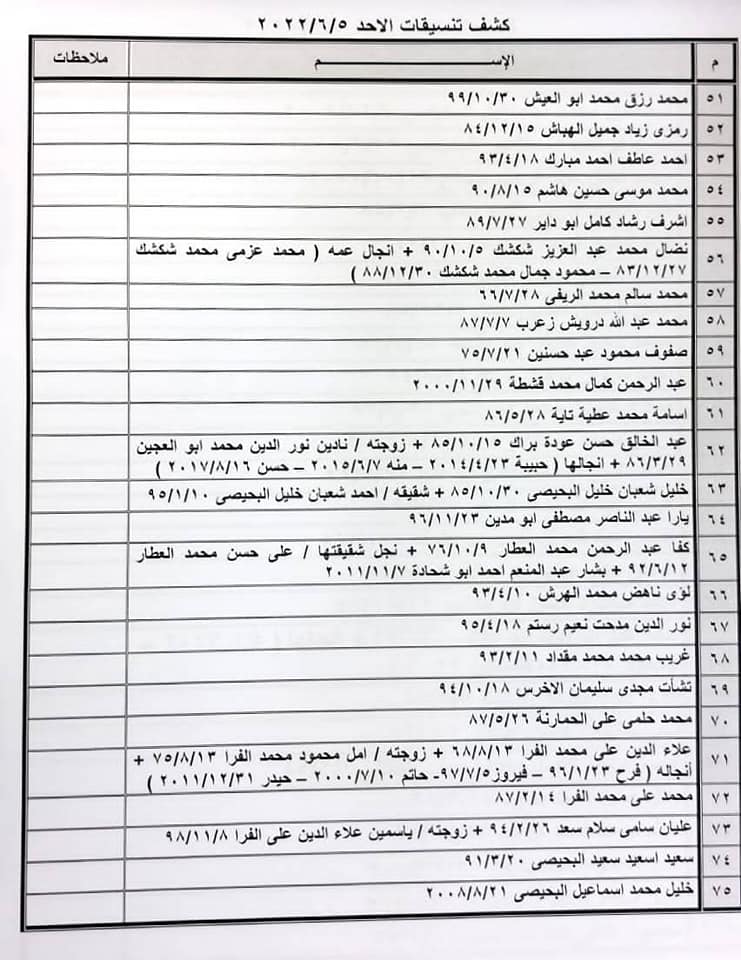 كشف تنسيقات الاحد ٢٠٢٢/٦/٥
م الإســـــم ملاحظات
٥١ محمد رزق محمد ابو العيش ٩٩/١٠/٣٠
٥٢ رمزى زياد جميل الهباش ٨٤/١٢/١٥
٥٣ احمد عاطف احمد مبارك ٩٣/٤/١٨
٥٤ محمد موسى حسين هاشم ٩٠/٨/١٥
٥٥ اشرف رشاد كامل ابو داير ٨٩/٧/٢٧
٥٦ نضال محمد عبد العزيز شكشك ٩٠/١٠/٥ + انجال عمه ( محمد عزمى محمد شكشك
٨٣/١٢/٢٧ – محمود جمال محمد شكشك ٨٨/١٢/٣٠ )
٥٧ محمد سالم محمد الريفى ٦٦/٧/٢٨
٥٨ محمد عبد الله درويش زعرب ٨٧/٧/٧
٥٩ صفوف محمود عبد حسنين ٧٥/٧/٢١
٦٠ عبد الرحمن كمال محمد قشطة ٢٠٠٠/١١/٢٩
٦١ اسامة محمد عطية تاية ٨٦/٥/٢٨
٦٢ عبد الخالق حسن عودة براك ٨٥/١٠/١٥ + زوجته / نادين نور الدين محمد ابو العجين
٨٦/٣/٢٩ + انجالها ( حبيبة ٢٠١٤/٤/٢٣ – منه ٢٠١٥/٦/٧ – حسن ٢٠١٧/٨/١٦ )
٦٣ خليل شعبان خليل البحيصى ٨٥/١٠/٣٠ + شقيقه / احمد شعبان خليل البحيصى ٩٥/١/١٠
٦٤ يارا عبد الناصر مصطفى ابو مدين ٩٦/١١/٢٣
٦٥ كفا عبد الرحمن محمد العطار ٧٦/١٠/٩ + نجل شقيقتها / على حسن محمد العطار
٩٢/٦/١٢ + بشار عبد المنعم احمد ابو شحادة ٢٠١١/١١/٧
٦٦ لؤى ناهض محمد الهرش ٩٣/٤/١٠
٦٧ نور الدين مدحت نعيم رستم ٩٥/٤/١٨
٦٨ غريب محمد محمد مقداد ٩٣/٢/١١
٦٩ تشأت مجدى سليمان الاخرس ٩٤/١٠/١٨
٧٠ محمد حلمى على الحمارنة ٨٧/٥/٢٦
٧١ علاء الدين على محمد الفرا ٦٨/٨/١٣ + زوجته / امل محمود محمد الفرا ٧٥/٨/١٣ +
أنجاله ( فرح ٩٦/١/٢٣ – فيروز ٩٧/٧/٥- حاتم ٢٠٠٠/٧/١٠ – حيدر ٢٠١١/١٢/٣١ )
٧٢ محمد على محمد الفرا ٨٧/٢/١٤
٧٣ عليان سامى سلام سعد ٩٤/٢/٢٦ + زوجته / ياسمين علاء الدين على الفرا ٩٨/١١/٨
٧٤ سعيد اسعيد سعيد البحيصى ٩١/٣/٢٠
٧٥ خليل محمد اسماعيل البحيصى ٢٠٠٨/٨/٢١